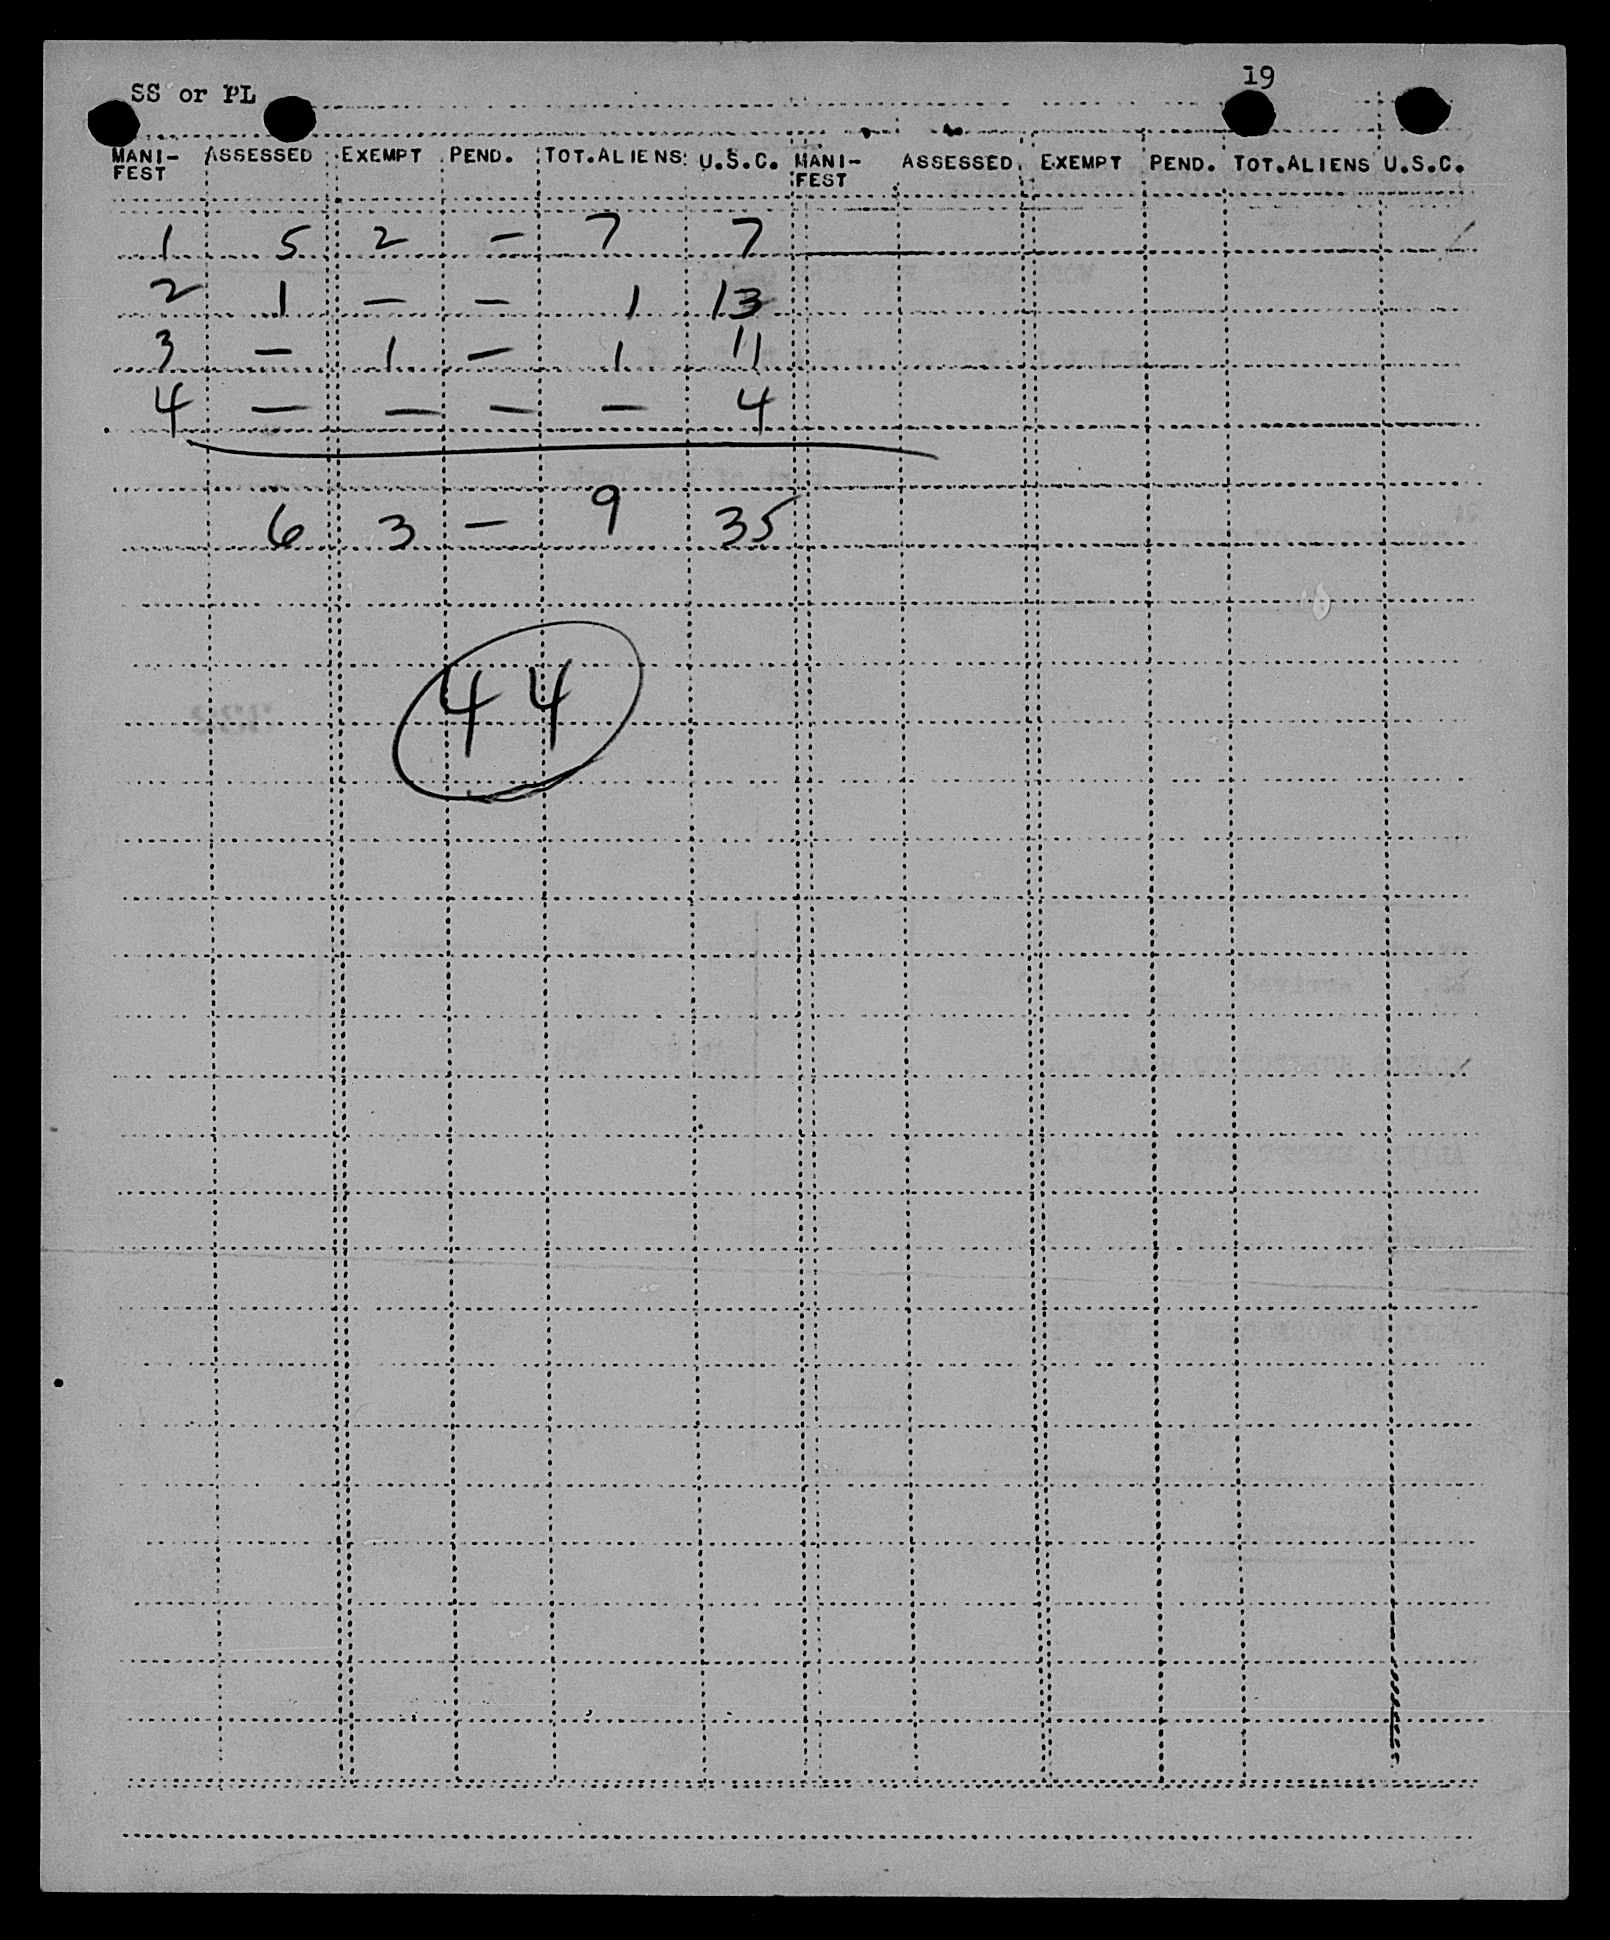 SS or PL 19
MANI-FEST ASSESSED EXEMPT PEND. TOT.ALIENS U.S.C. MANI-FEST ASSESSED EXEMPT PEND. TOT.ALIENS U.S.C.
1 5 2 - 7 7
2 1 - - 1 13
3 - 1 - 1 11
4 - - - - 4
6 3 - 9 35
44